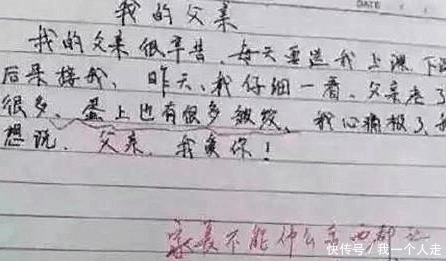 我的父亲
DATE
我的父亲很辛苦、每天要送我上课 下课
后来接我、昨天、我仔细一看、父亲老了
很多、蛋上也有很多皱纹、我心痛极了、我
想说、父亲、我爱你！
家长不能什么东西都
快传号／我一个人走